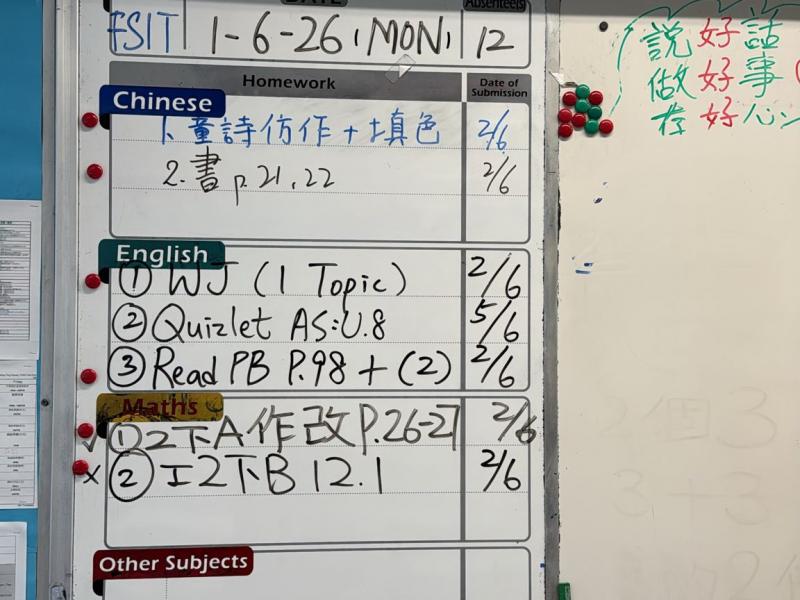 DATE Absentees
FSIT 1-6-26 (MON) 12
Homework Date of Submission
Chinese
1. 童詩仿作+填色 2/6
2. 書 p.21,22 2/6
English
① WJ (1 Topic) 2/6
② Quizlet AS:U.8 5/6
③ Read PB P.98 + (2) 2/6
Maths
✓ ① 2下A作改 P.26-27 2/6
x ② 工2下B 12.1 2/6
Other Subjects
說好話
做好事
存好心
2個3
3+3